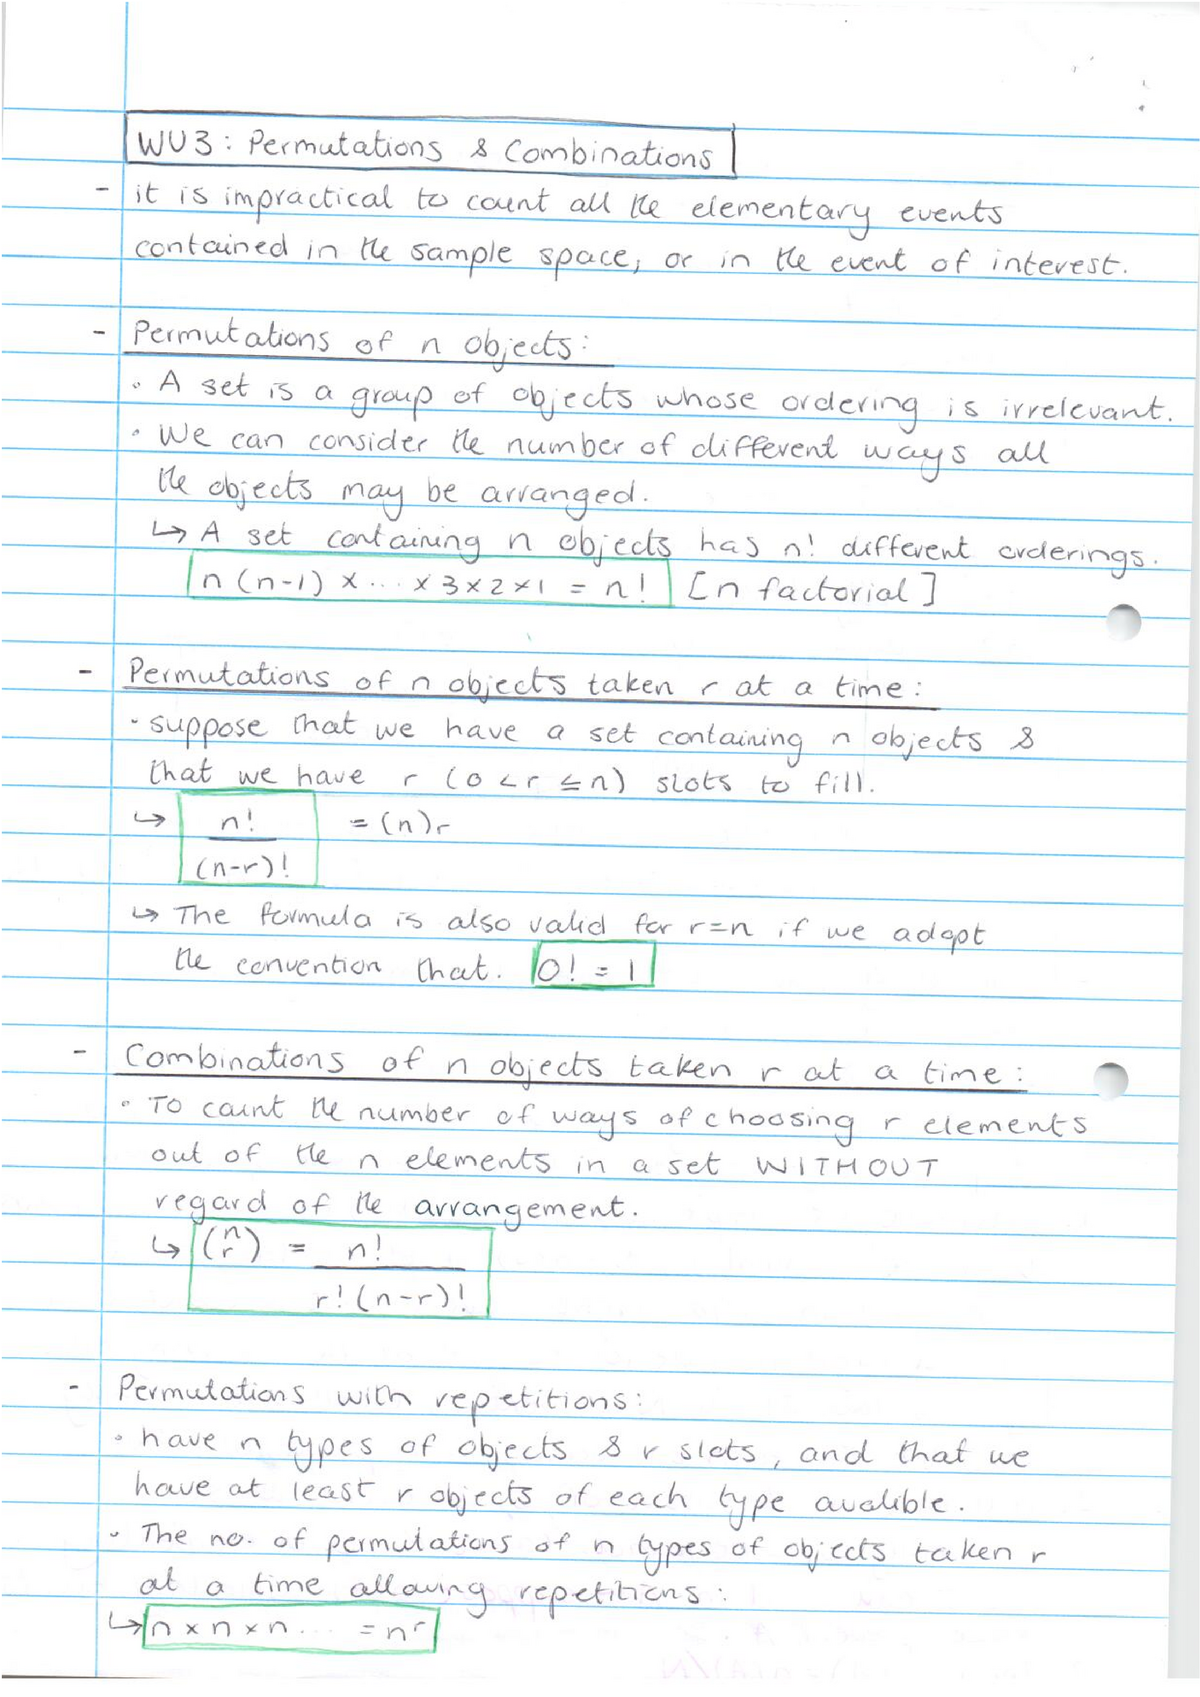 WU3: Permutations & Combinations
- it is impractical to count all the elementary events
contained in the sample space, or in the event of interest.
- Permutations of n objects:
• A set is a group of objects whose ordering is irrelevant.
• We can consider the number of different ways all
the objects may be arranged.
↳ A set containing n objects has n! different orderings.
n(n-1) × ... × 3×2×1 = n! [n factorial]
- Permutations of n objects taken r at a time:
• suppose that we have a set containing n objects &
that we have r (0<r≤n) slots to fill.
↳ n! = (n)r
(n-r)!
↳ The formula is also valid for r=n if we adopt
the convention that. 0! = 1
- Combinations of n objects taken r at a time:
• To count the number of ways of choosing r elements
out of the n elements in a set WITHOUT
regard of the arrangement.
↳ (n r) = n!
r!(n-r)!
- Permutations with repetitions:
• have n types of objects & r slots, and that we
have at least r objects of each type avalible.
• The no. of permutations of n types of objects taken r
at a time allowing repetitions:
↳ n×n×n... = nʳ